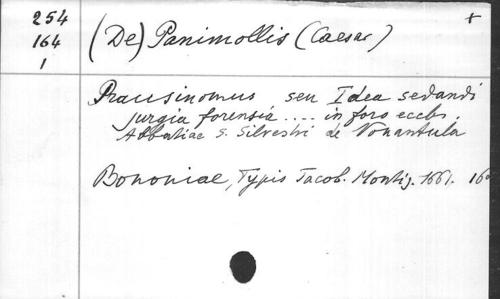 254
164
1
(De) Panimollis (Caesar) +
Prausinomus seu Idea sedandi
jurgia forensia .... in foro eccl.
Abbatiae S. Silvestri de Nonantula
Bononiae, Typis Jacob. Montij. 1661. 16